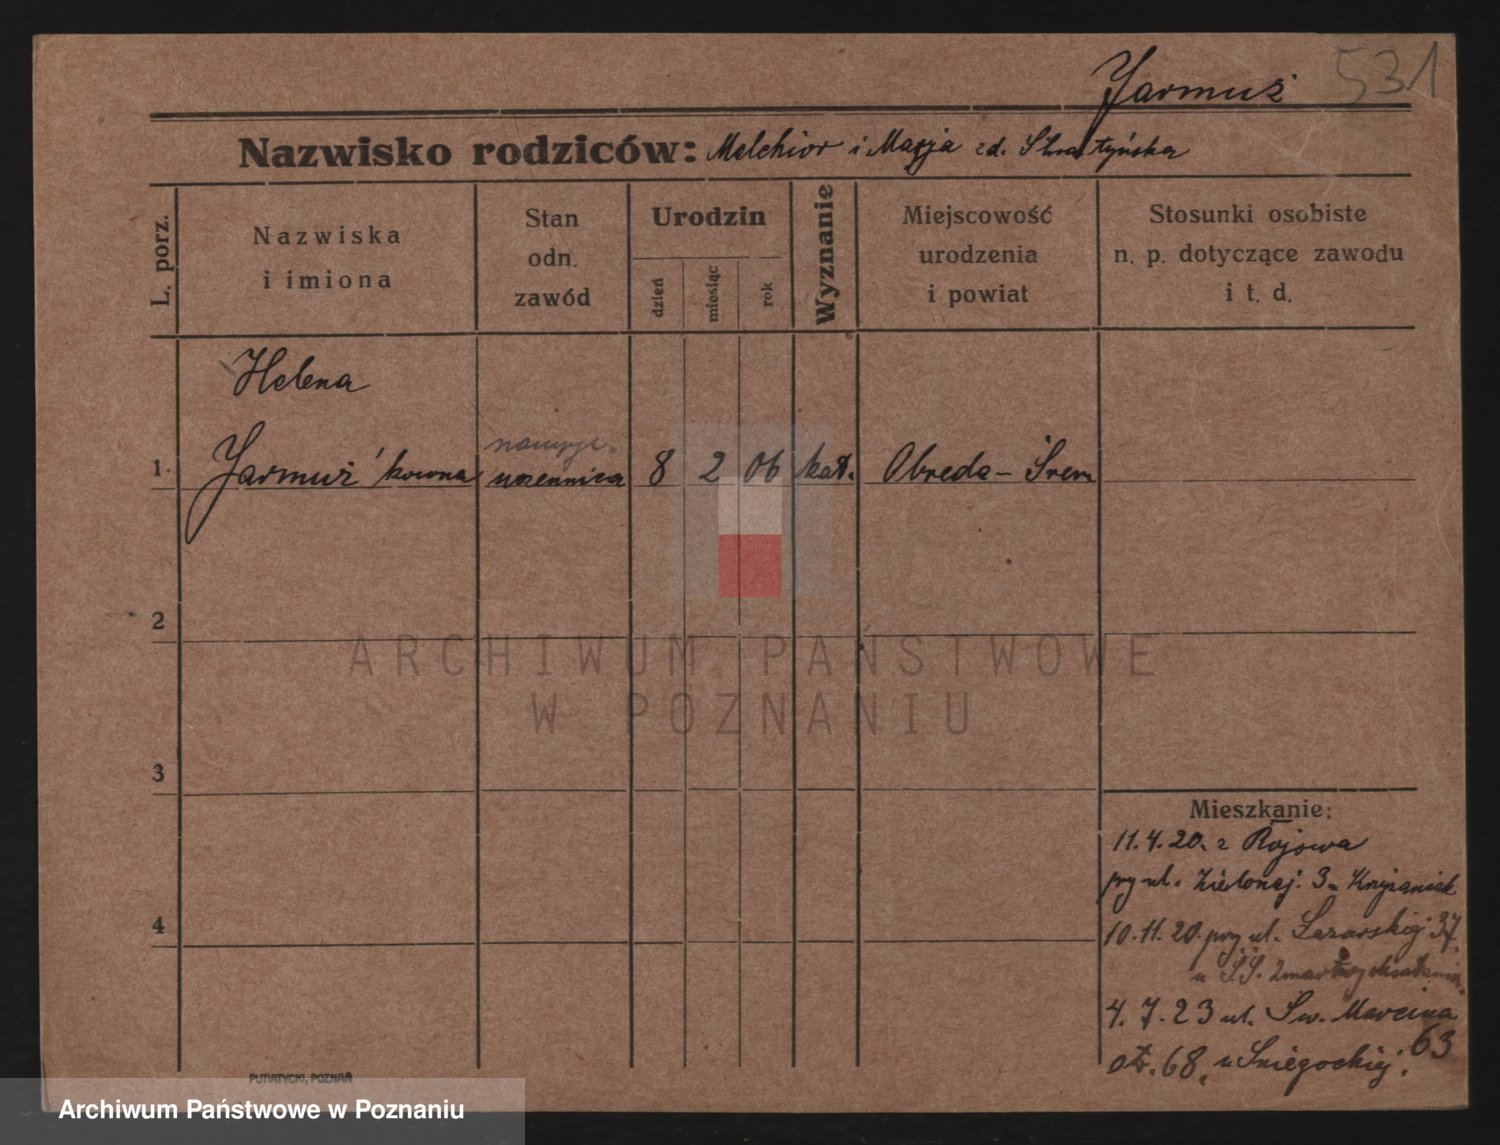 Jarmuż 531
Nazwisko rodziców: Melchior i Marja zd.
L. porz.
Nazwiska
i imiona
Stan
odn.
zawód
Urodzin
dzień
miesiąc
rok
Wyznanie
Miejscowość
urodzenia
i powiat
Stosunki osobiste
n. p. dotyczące zawodu
i t. d.
Helena
1. Jarmuż'kowna uczennica 8 2 06 kat. Obreda - Śrem
2
3
4
Mieszkanie:
11.4.20. z Rojowa
przy ul. Zielonej. 3 u Krzyżaniak
10.11.20. przy ul. Łazarskiej 37.
u S.S. Zmartwychwstania.
4.7.23 ul. Św. Marcina
63
of. 68. u Śniegockiej.
PUTIATYCKI, POZNAŃ
ARCHIWUM PAŃSTWOWE
W POZNANIU
Archiwum Państwowe w Poznaniu